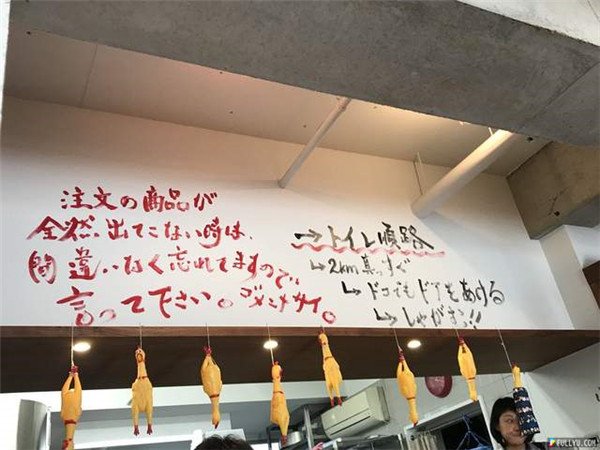 注文の商品が
全然出てこない時は、
間違いなく忘れてますので、
言って下さい。ゴメンナサイ。
→トイレ順路
↳2km真っすぐ
↳ドコでもドアをあける
↳しゃがむっ!!
FULLYU.COM